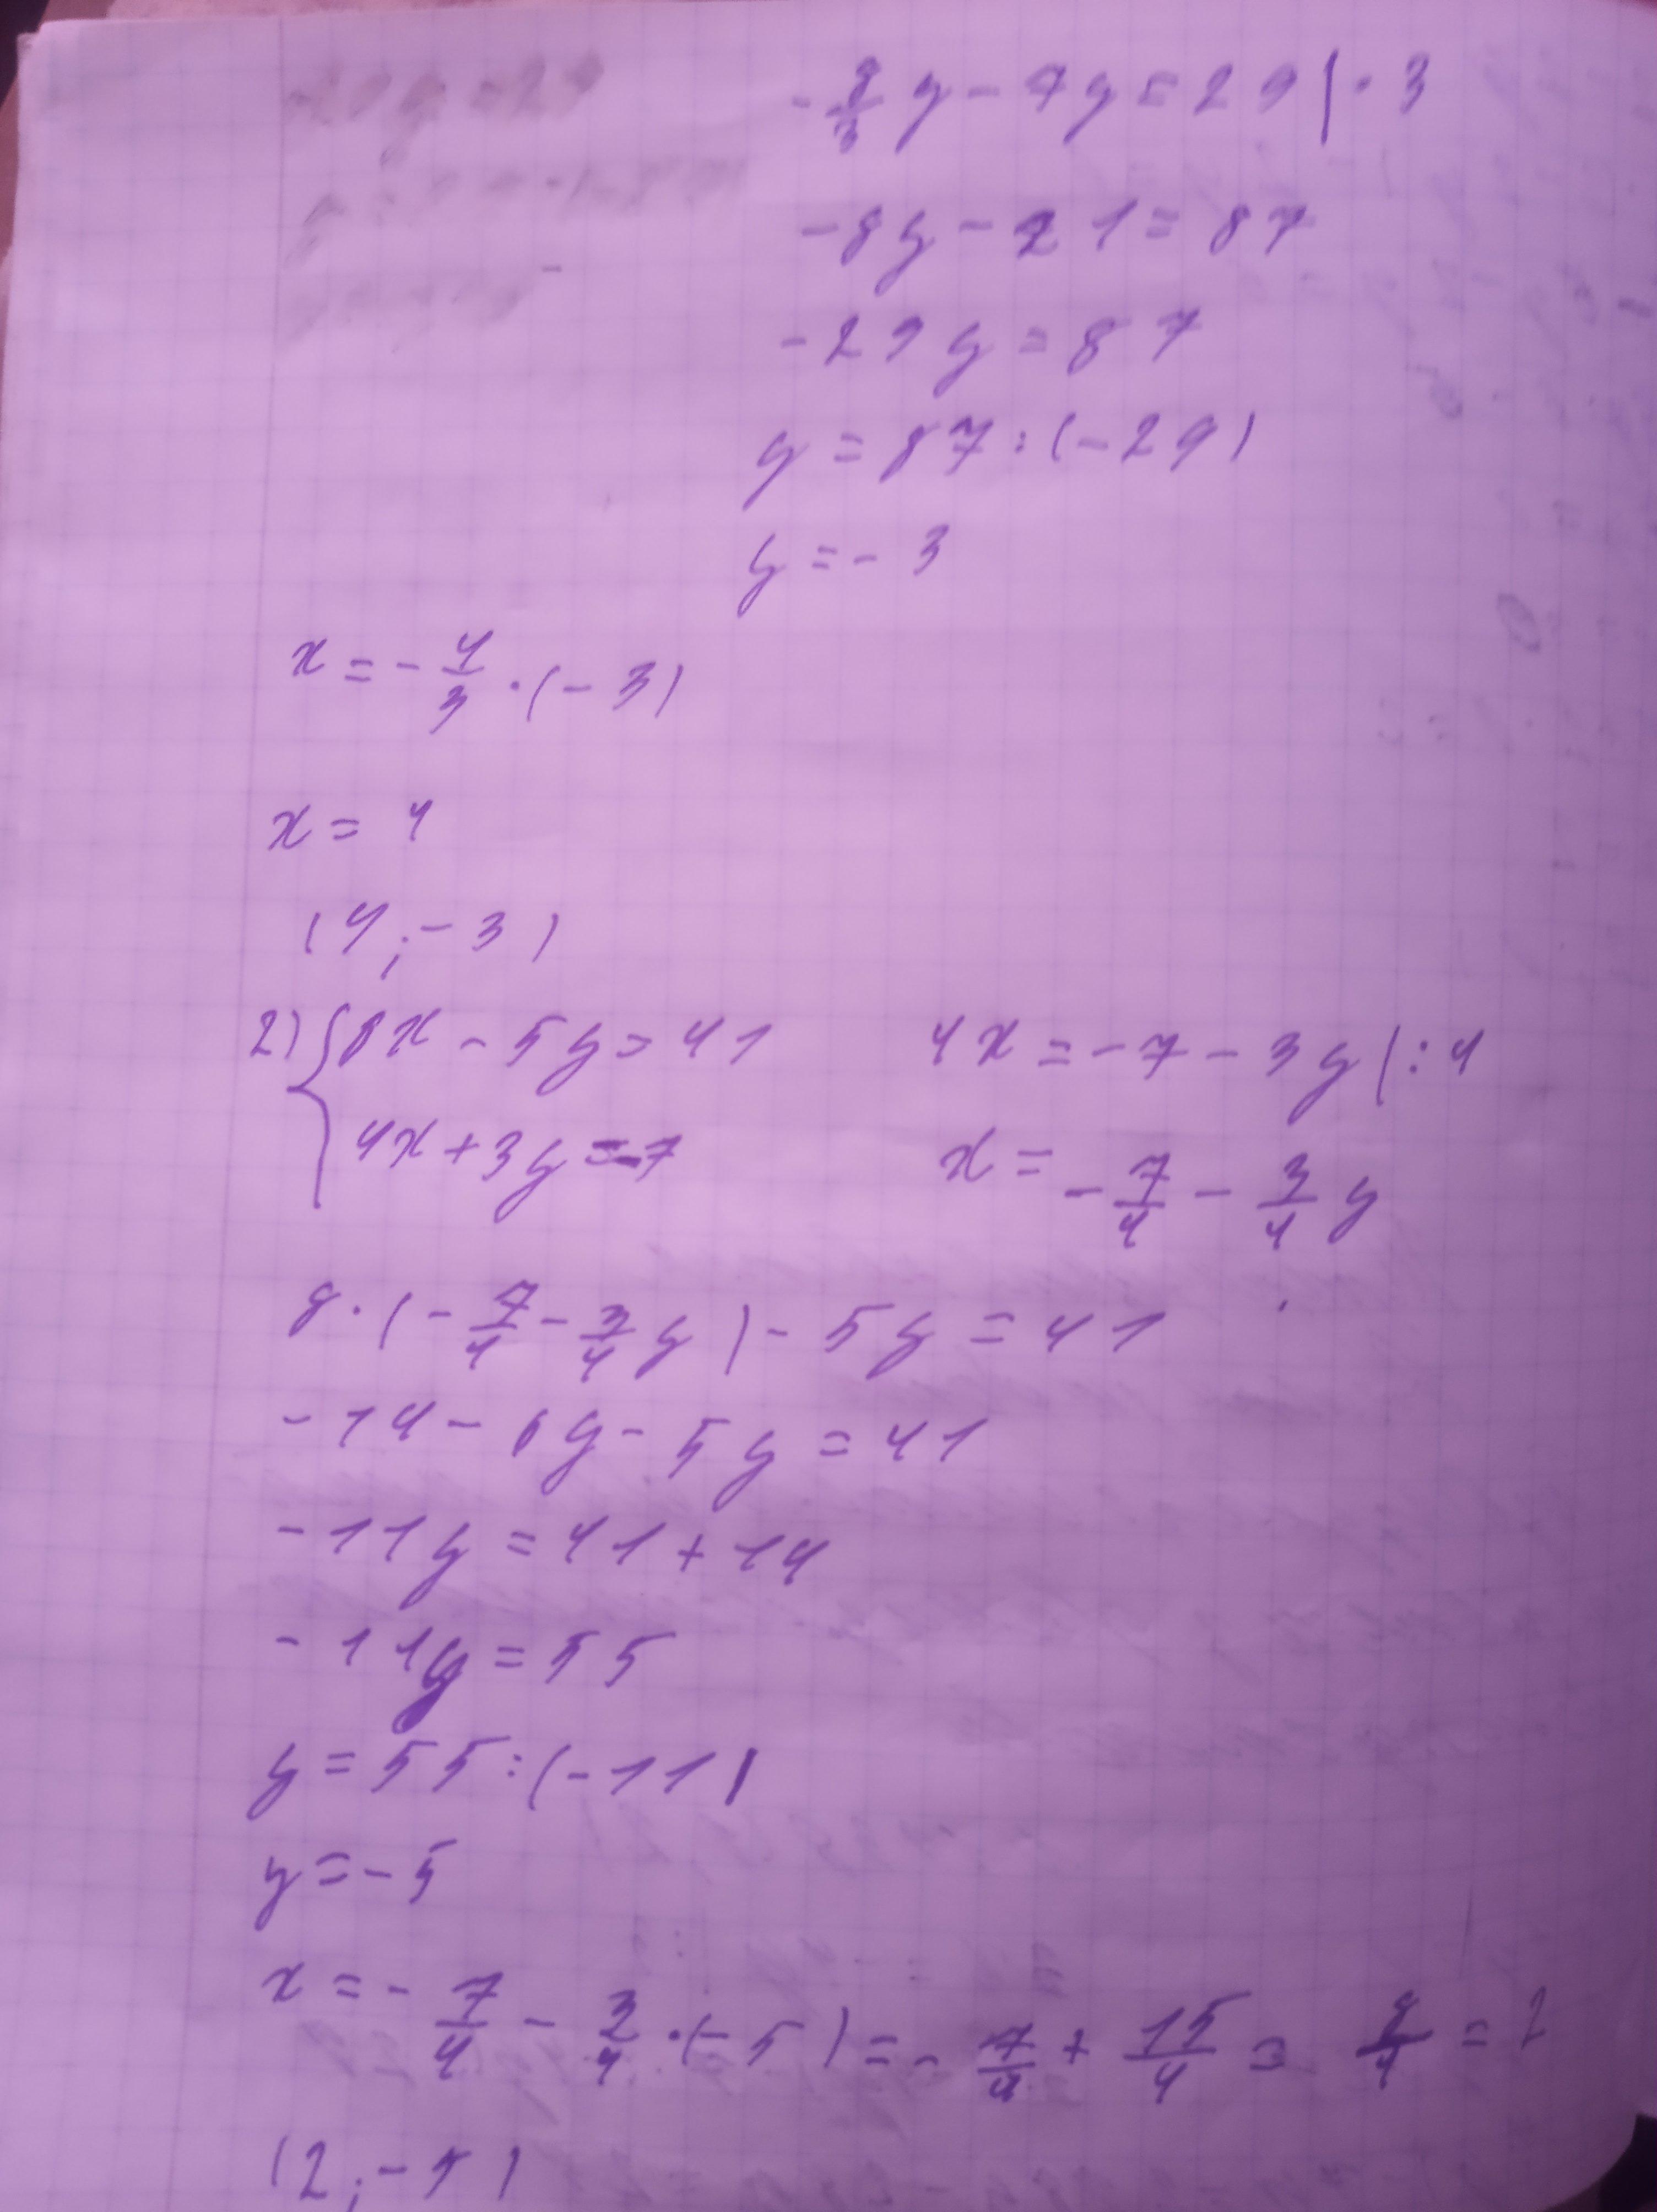 -8/3 y - 7y = 29 | · 3
-8y - 21 = 87
-29y = 87
y = 87 : (-29)
y = -3
x = -4/3 · (-3)
x = 4
(4; -3)
2) { 8x - 5y = 41
4x + 3y = -7
4x = -7 - 3y | : 4
x = -7/4 - 3/4 y
8 · (-7/4 - 3/4 y) - 5y = 41
-14 - 6y - 5y = 41
-11y = 41 + 14
-11y = 55
y = 55 : (-11)
y = -5
x = -7/4 - 3/4 · (-5) = -7/4 + 15/4 = 8/4 = 2
(2; -5)